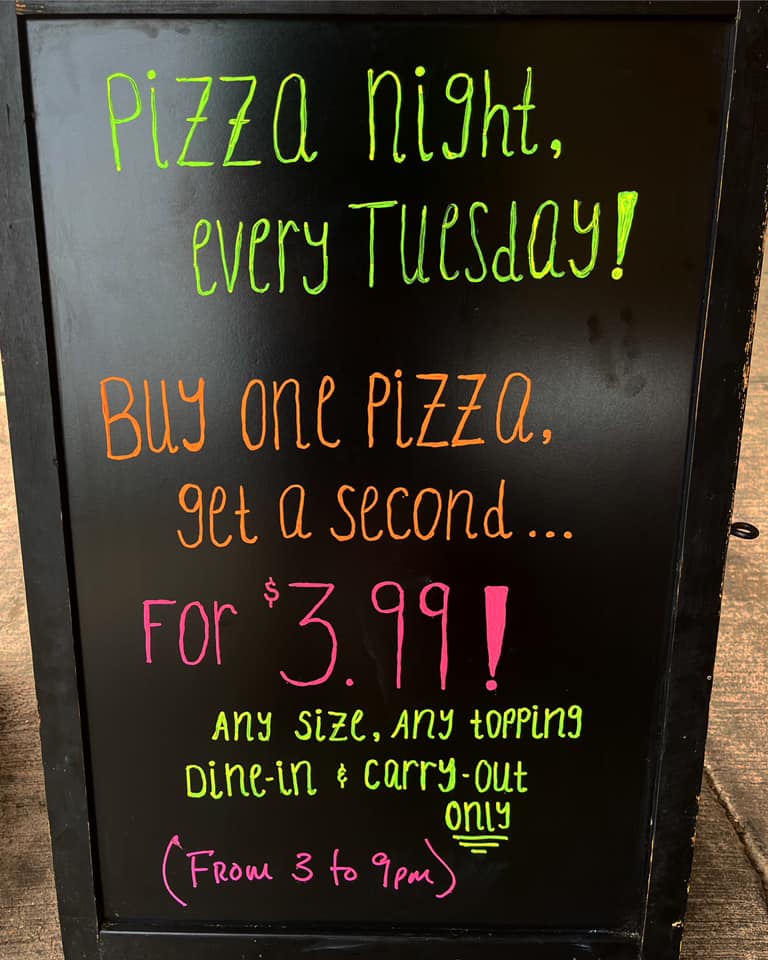 Pizza night,
every Tuesday!
Buy one pizza,
get a second...
For $3.99!
Any size, Any topping
Dine-in & carry-out
only
(From 3 to 9pm)